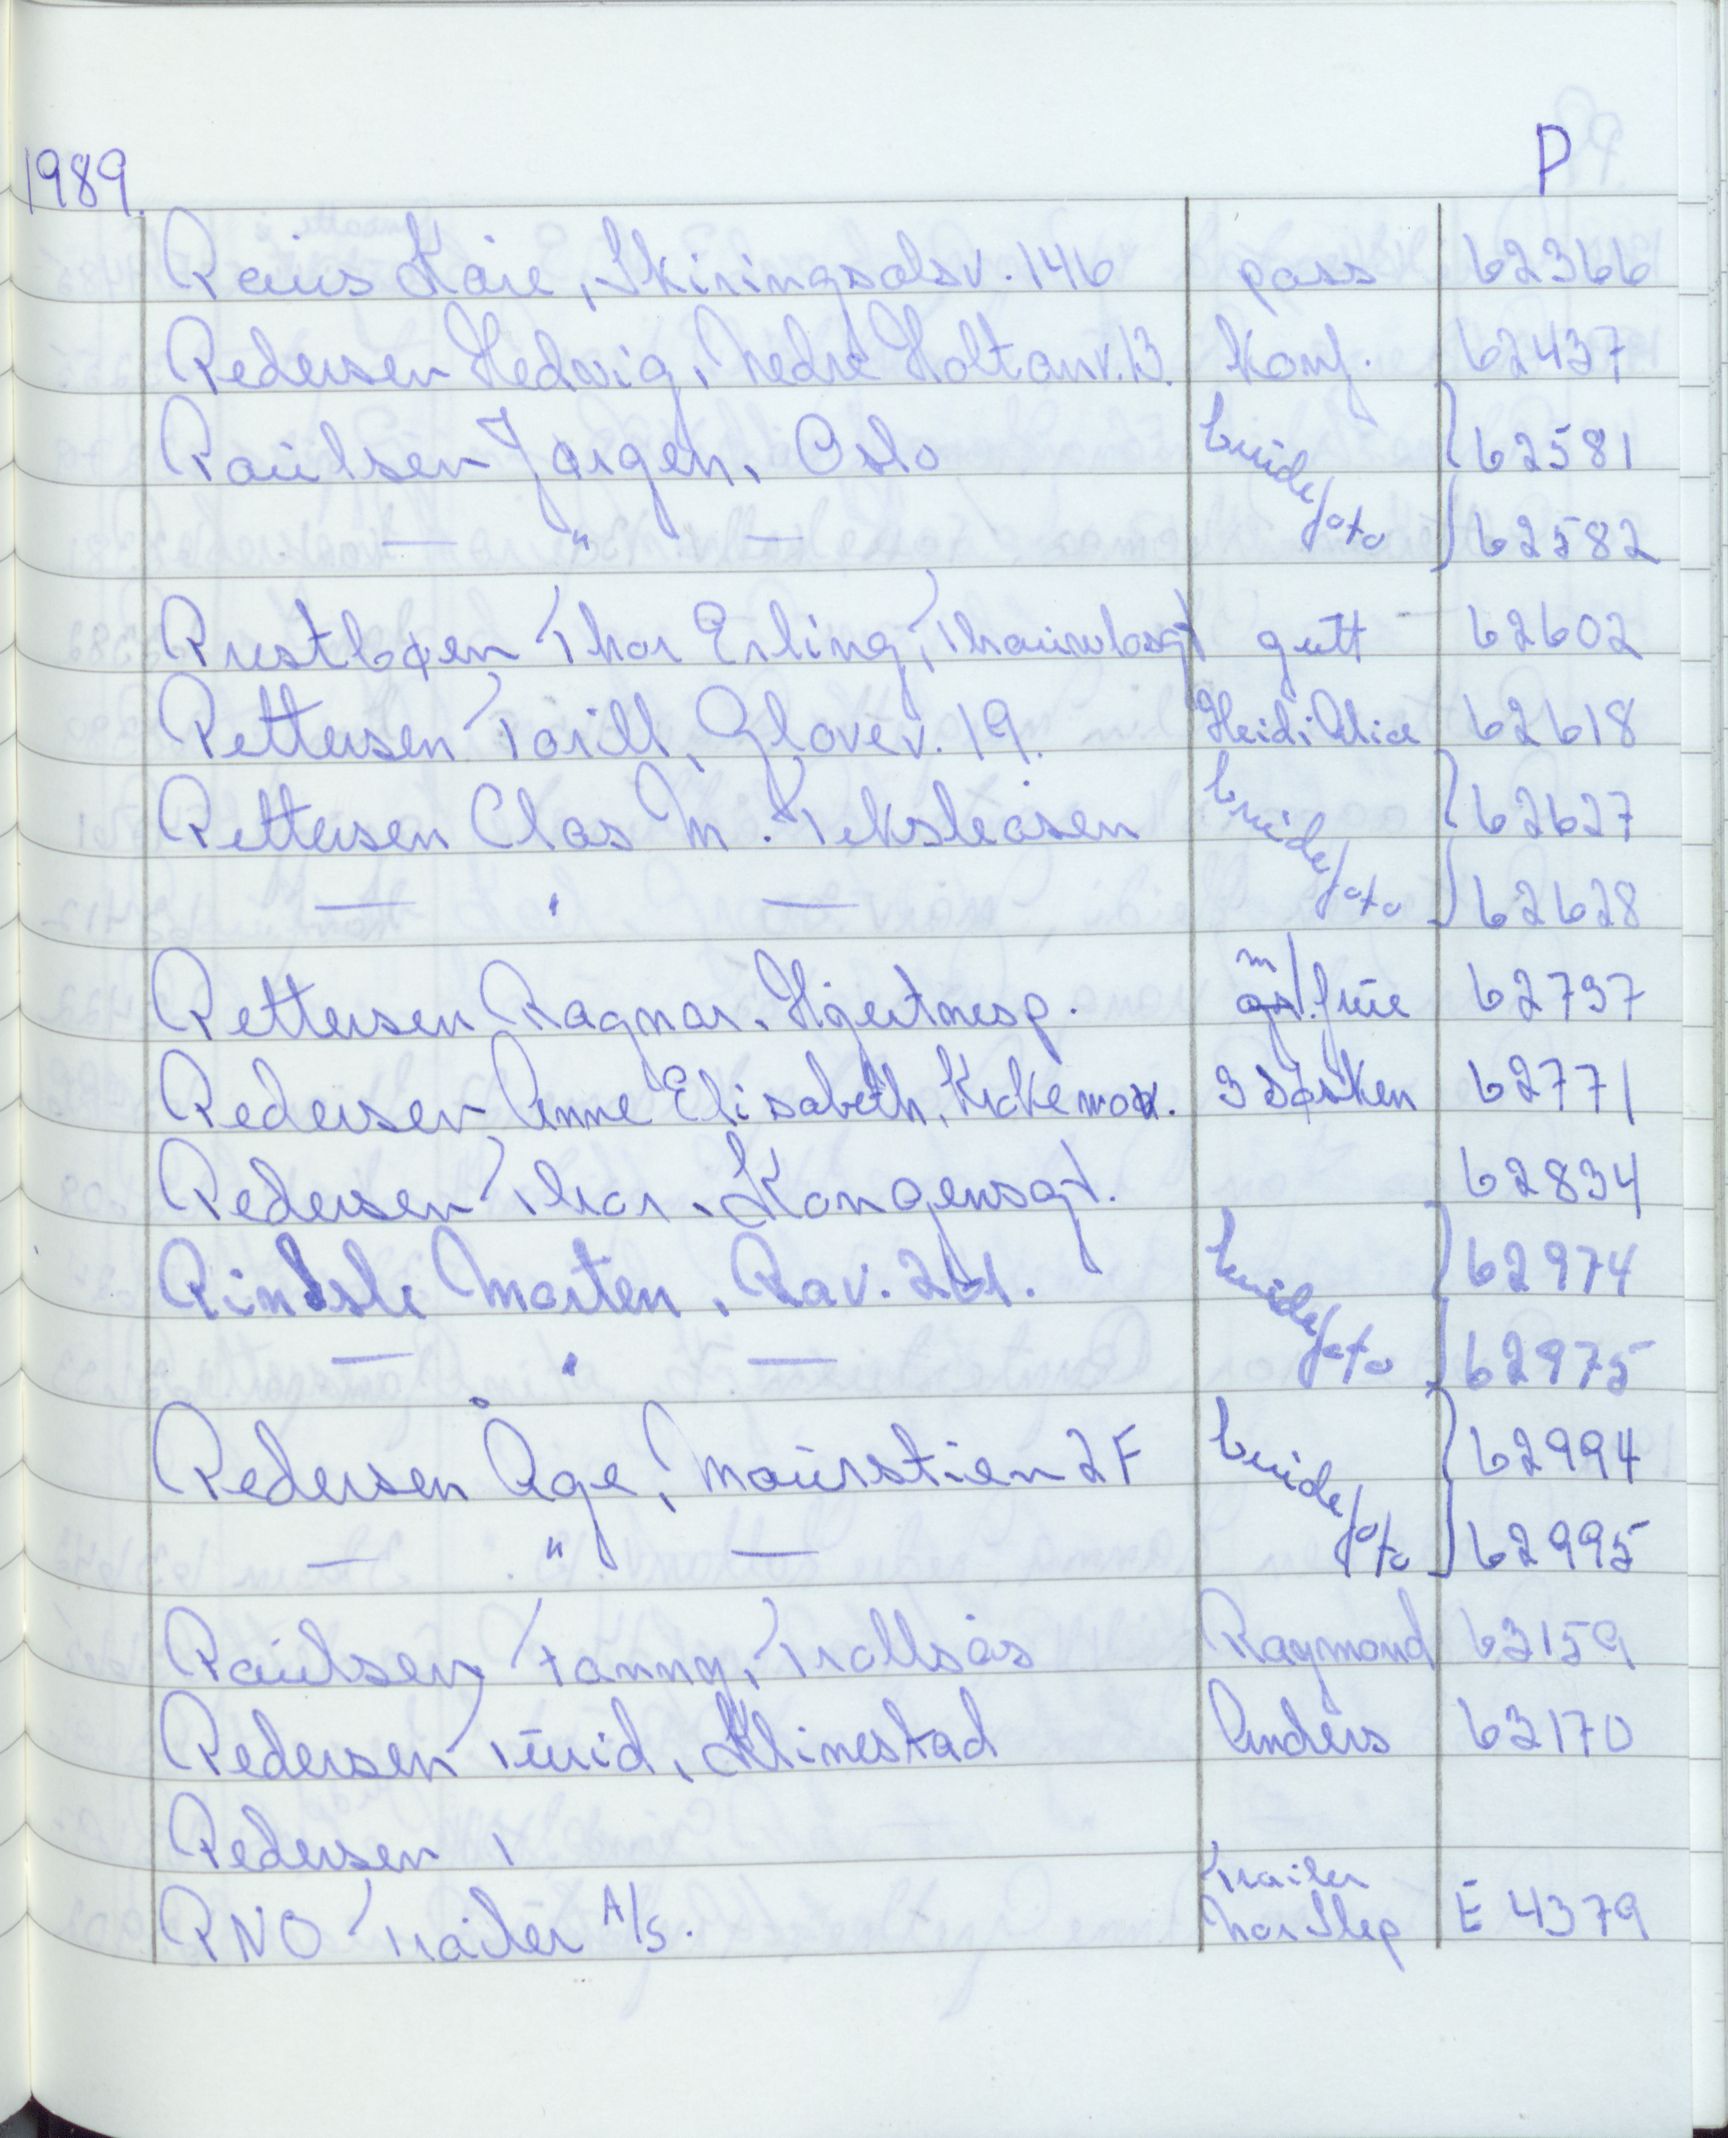 1989. P
Paus Kåre, Skiringsalsv. 146 pass 62366
Pedersen Hedvig, Nedre Holtanv. 13. Konf. 62437
Paulsen Jørgen, Oslo brudefoto 62581
— " — 62582
Prestbøen Thor Erling, Thaulowsgt gutt 62602
Pettersen Torill, Glovev. 19. Heidi Alice 62618
Pettersen Clas M. Veksleåsen brudefoto 62627
— " — 62628
Pettersen Ragnar, Hjertnesp. m/frue 62797
Pedersen Anne Elisabeth, Krokemov. 3 søsken 62771
Pedersen Thor, Kongensgt. 62834
Pindsle Morten, Rav. brudefoto 62974
— " — 62975
Pedersen Åge, Maurstien 2F brudefoto 62994
— " — 62995
Paulsen Fanny, Trollsås Raymond 63159
Pedersen Turid, Klinestad Anders 63170
Pedersen,
PNO Trailer A/S. Trailer Nor Slep E 4379